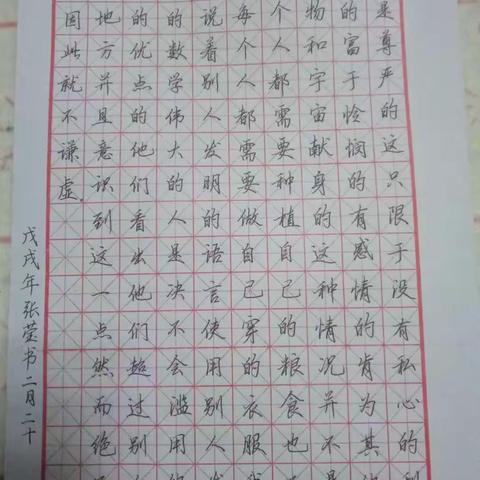 是尊严的这只限于没有私心的
的富于怜悯的有感情的肯为其
物和宇宙献身的这种情况并不
个人都需要种植自己的粮食也
每个人都需要做自己穿的衣服
说着别人发明的语言使用别人
的数学伟大的人是决不会滥用
的优点的他们看出他们超过别
地方并且意识到这一点然而绝
因此就不谦虚。
戊戌年张莹书二月二十